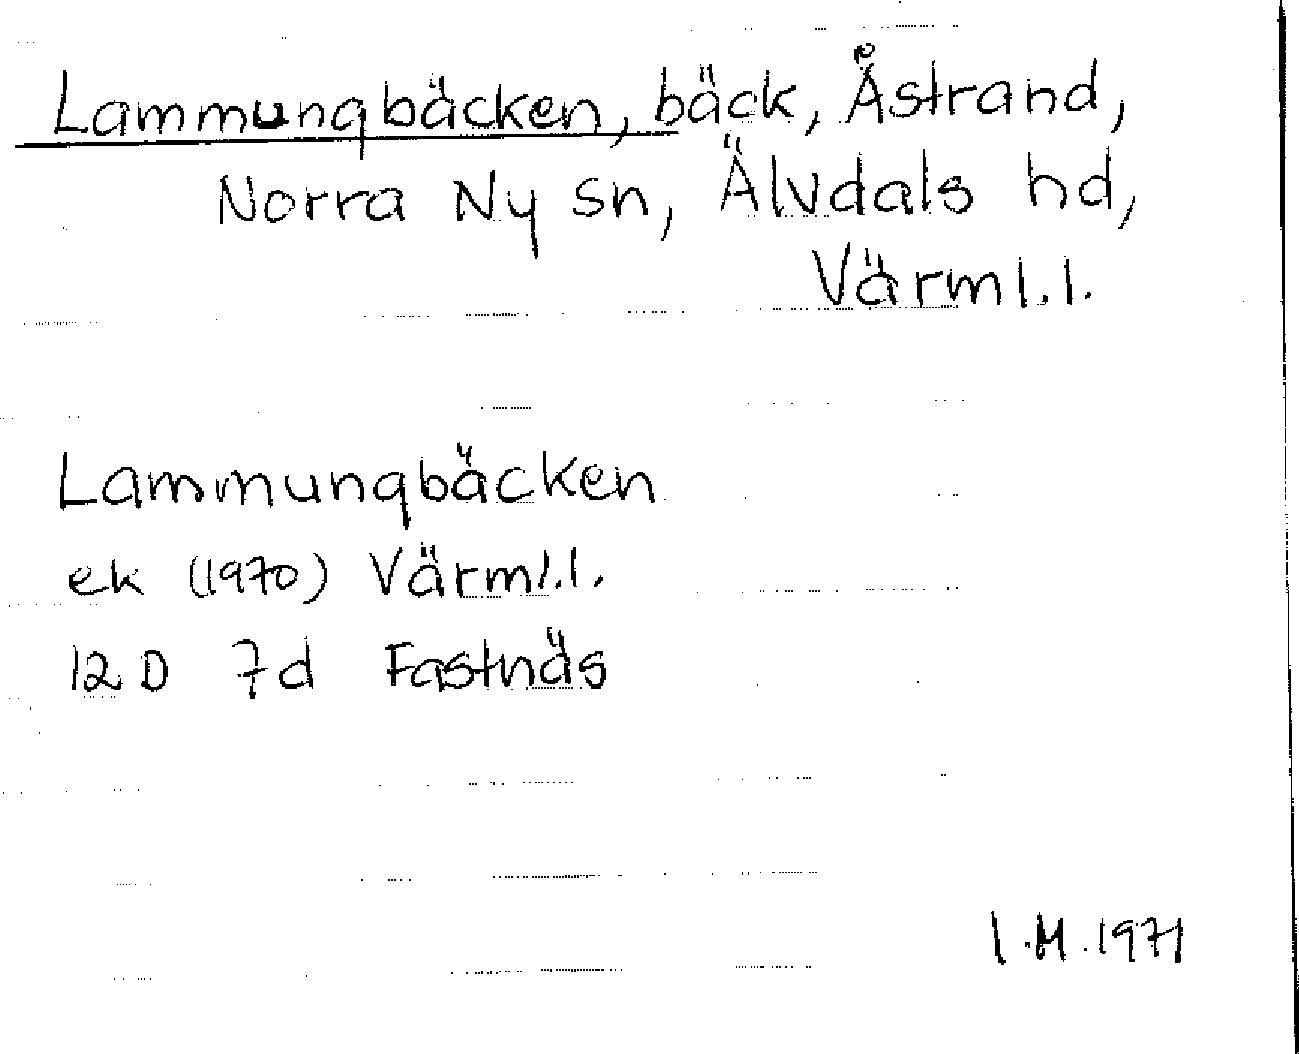 Lammungbäcken, bäck, Åstrand,
Norra Ny sn, Älvdals hd,
Värml.l.
Lammungbäcken
ek (1970) Värml.l.
12 D 7d Fastnäs
I.M. 1971